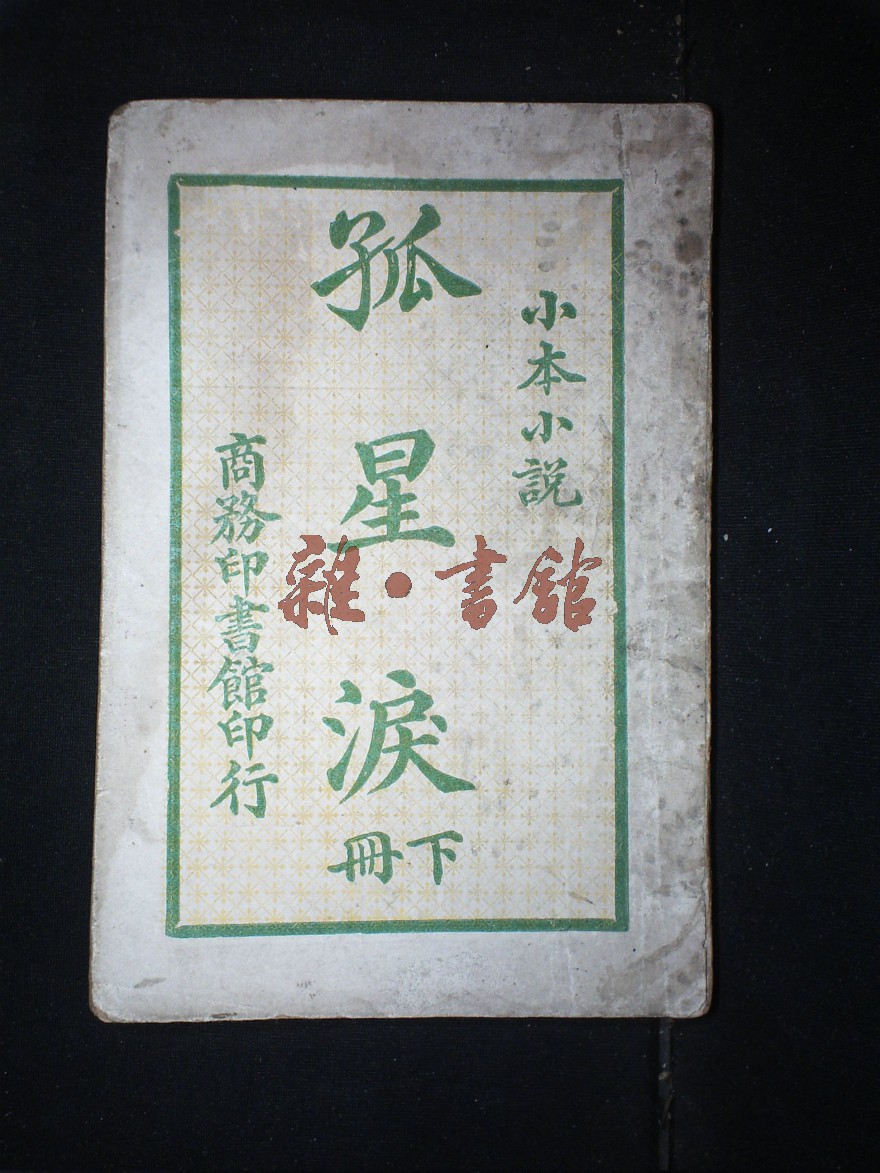 小本小説
孤星淚
下冊
商務印書館印行
雜·書館